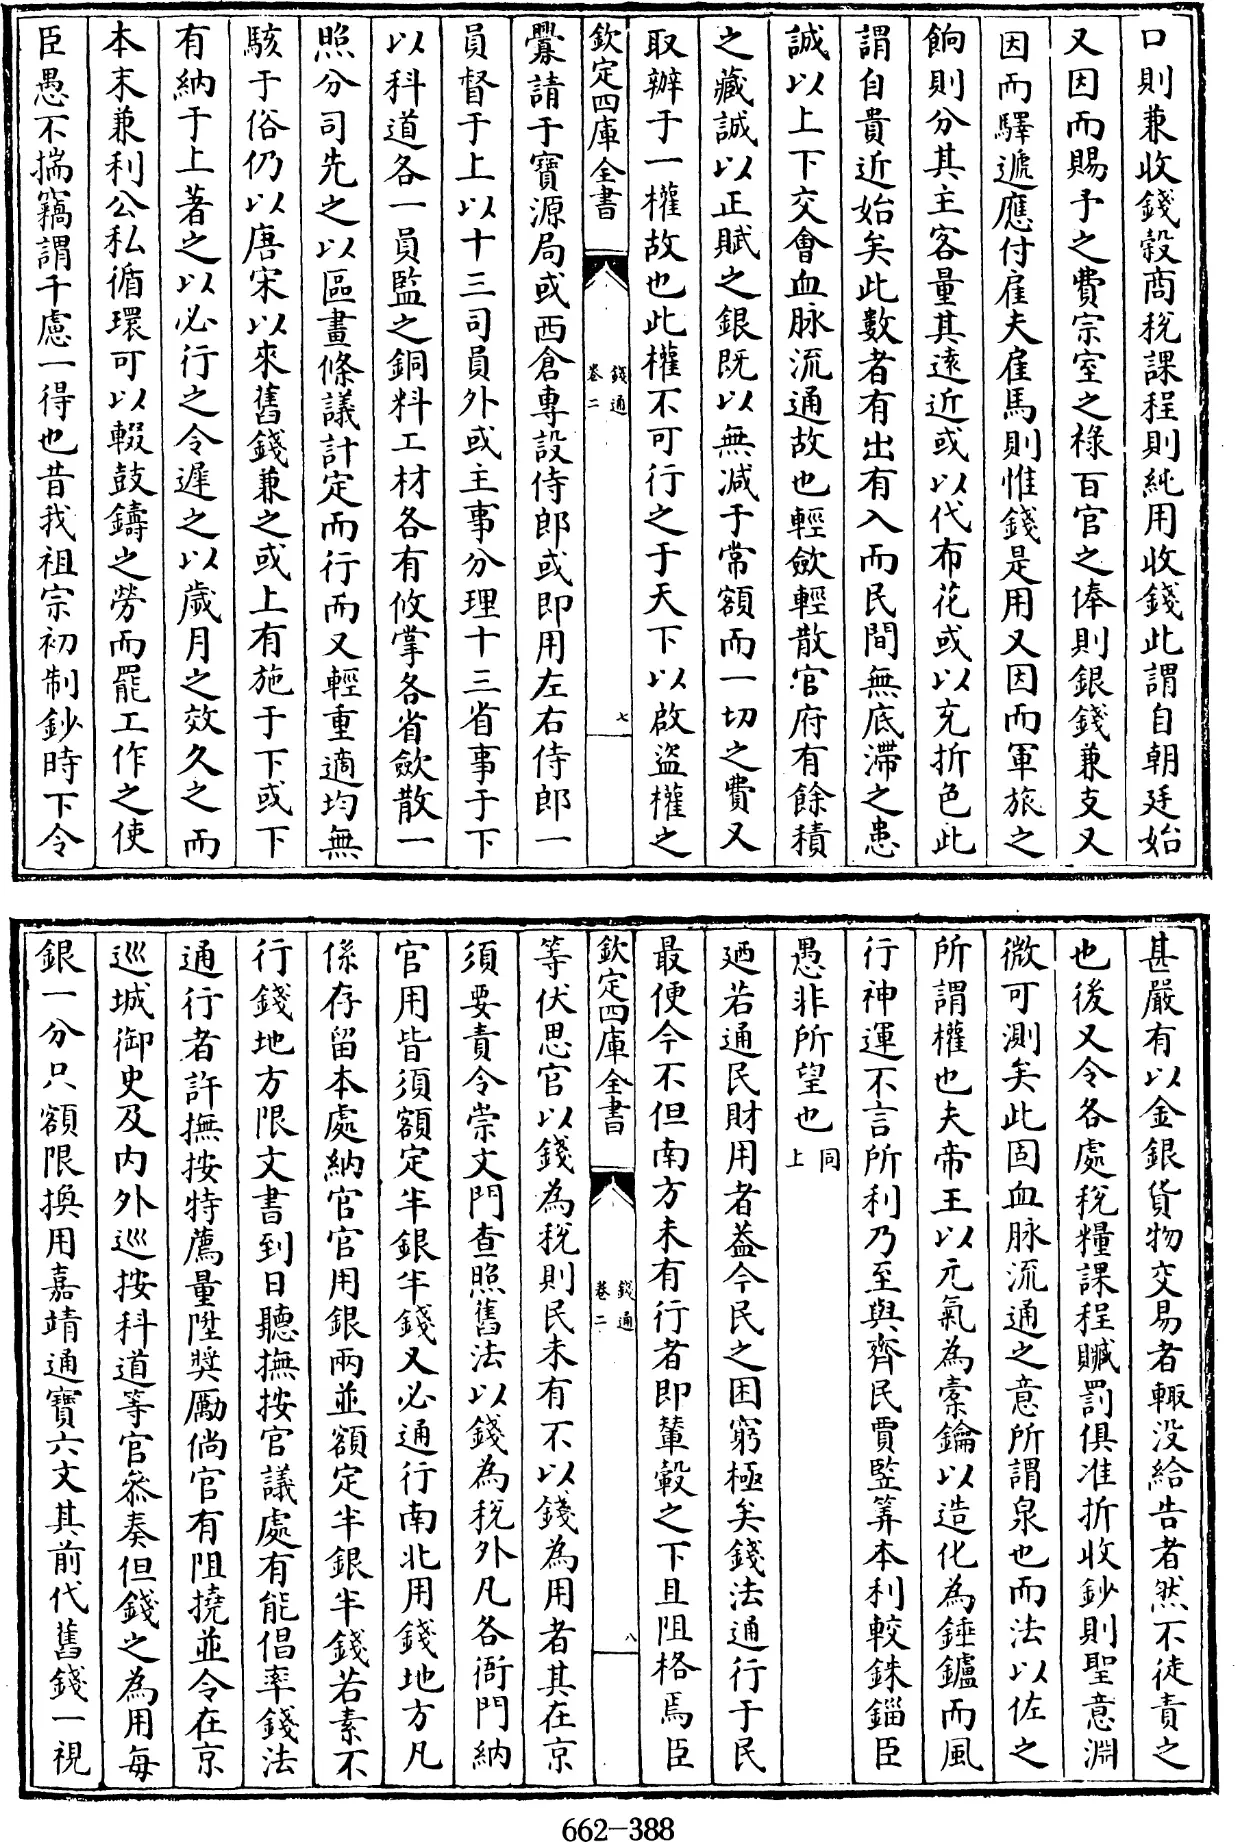 口則兼收錢穀商稅課程則純用收錢此謂自朝廷始
又因而賜予之費宗室之祿百官之俸則銀錢兼支又
因而驛遞應付雇夫雇馬則惟錢是用又因而軍旅之
餉則分其主客量其遠近或以代布花或以充折色此
謂自貴近始矣此數者有出有入而民間無底滯之患
誠以上下交會血脉流通故也輕歛輕散官府有餘積
之藏誠以正賦之銀既以無減于常額而一切之費又
取辦于一權故也此權不可行之于天下以啟盜權之
欽定四庫全書
錢通
卷二
七
釁請于寶源局或西倉專設侍郎或即用左右侍郎一
員督于上以十三司員外或主事分理十三省事于下
以科道各一員監之銅料工材各有攸掌各省歛散一
照分司先之以區畫條議計定而行而又輕重適均無
駭于俗仍以唐宋以來舊錢兼之或上有施于下或下
有納于上著之以必行之令遲之以歲月之效久之而
本末兼利公私循環可以輟鼓鑄之勞而罷工作之使
臣愚不揣竊謂千慮一得也昔我祖宗初制鈔時下令
甚嚴有以金銀貨物交易者輙没給告者然不徒責之
也後又令各處稅糧課程贓罰俱准折收鈔則聖意淵
微可測矣此固血脉流通之意所謂泉也而法以佐之
所謂權也夫帝王以元氣為橐鑰以造化為錘鑪而風
行神運不言所利乃至與齊民賈豎筭本利較銖錙臣
愚非所望也同上
廼若通民財用者葢今民之困窮極矣錢法通行于民
最便今不但南方未有行者即輦轂之下且阻格焉臣
欽定四庫全書
錢通
卷二
八
等伏思官以錢為稅則民未有不以錢為用者其在京
須要責令崇文門查照舊法以錢為稅外凡各衙門納
官用皆須額定半銀半錢又必通行南北用錢地方凡
係存留本處納官官用銀兩並額定半銀半錢若素不
行錢地方限文書到日聽撫按官議處有能倡率錢法
通行者許撫按特薦量陞獎勵倘官有阻撓並令在京
巡城御史及内外巡按科道等官叅奏但錢之為用每
銀一分只額限換用嘉靖通寶六文其前代舊錢一視
662-388